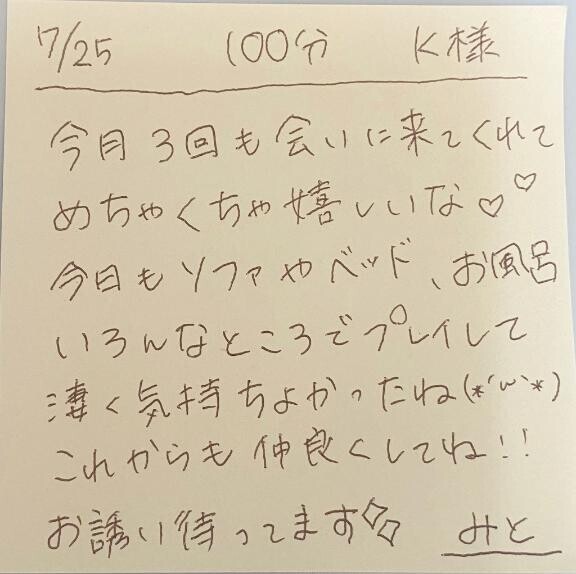 7/25 100分 K様
今月3回も会いに来てくれて
めちゃくちゃ嬉しいな♡♡
今日もソファやベッド、お風呂
いろんなところでプレイして
凄く気持ちよかったね(*´ω`*)
これからも仲良くしてね!!
お誘い待ってます◇◇ みと